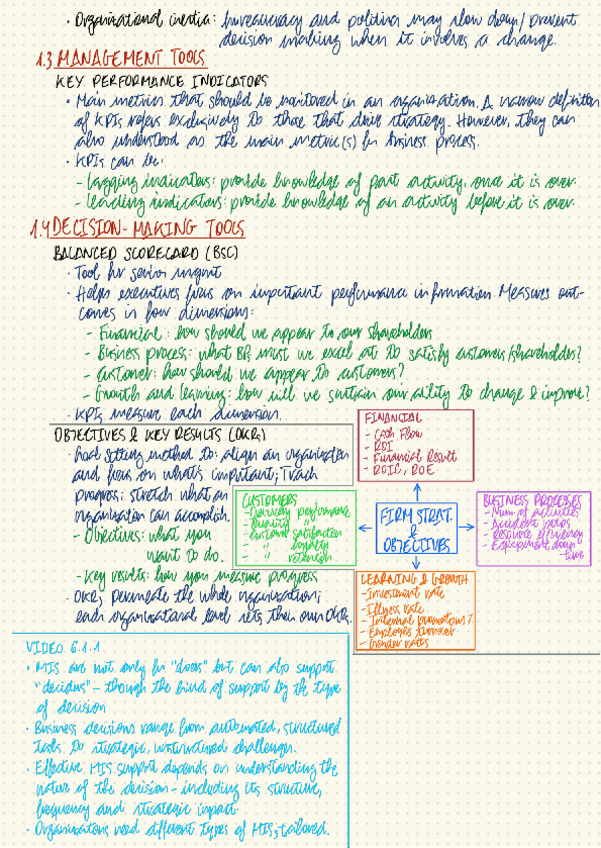 • Organizational inertia: bureaucracy and politics may slow down/prevent
decision making when it involves a change.
1.3 MANAGEMENT TOOLS
KEY PERFORMANCE INDICATORS
• Main metrics that should be monitored in an organization. A narrow definition
of KPIs refers exclusively to those that drive strategy. However, they can
also understood as the main metric(s) for business process.
• KPIs can be:
- Lagging indicators: provide knowledge of past activity, once it is over.
- Leading indicators: provide knowledge of an activity before it is over.
1.4 DECISION-MAKING TOOLS
BALANCED SCORECARD (BSC)
• Tool for senior mgmt
• Helps executives focus on important performance information. Measures out-
comes in four dimensions:
- Financial: how should we appear to our shareholders
- Business process: what BPs must we excel at to satisfy customers/shareholders?
- Customer: how should we appear to customers?
- Growth and learning: how will we sustain our ability to change & improve?
• KPIs measure each dimension.
OBJECTIVES & KEY RESULTS (OKRs)
• Goal setting method to: align an organization
and focus on what's important; Track
progress; stretch what an
organization can accomplish.
- Objectives: what you
want to do.
- Key results: how you measure progress
• OKRs permeate the whole organization;
each organizational level sets their own OKRs.
FINANCIAL
- Cash Flow
- ROI
- Financial Result
- ROIC, ROE
CUSTOMERS
- Delivery performance
- Quality "
- Customer satisfaction
- " loyalty
- " retention
FIRM STRAT.
& OBJECTIVES
BUSINESS PROCESSES
- Num of activities
- Accident ratios
- Resource efficiency
- Equipment down-
time
LEARNING & GROWTH
- Investment rate
- Illness rate
- Internal promotions %
- Employee turnover
- Gender rates
VIDEO 6.1.1
• MIS are not only for "doers" but can also support
"deciders" - though the kind of support by the type
of decision
• Business decisions range from automated, structured
tasks to strategic, unstructured challenges.
• Effective MIS support depends on understanding the
nature of the decision - including its structure,
frequency and strategic impact.
• Organizations need different types of MIS, tailored.